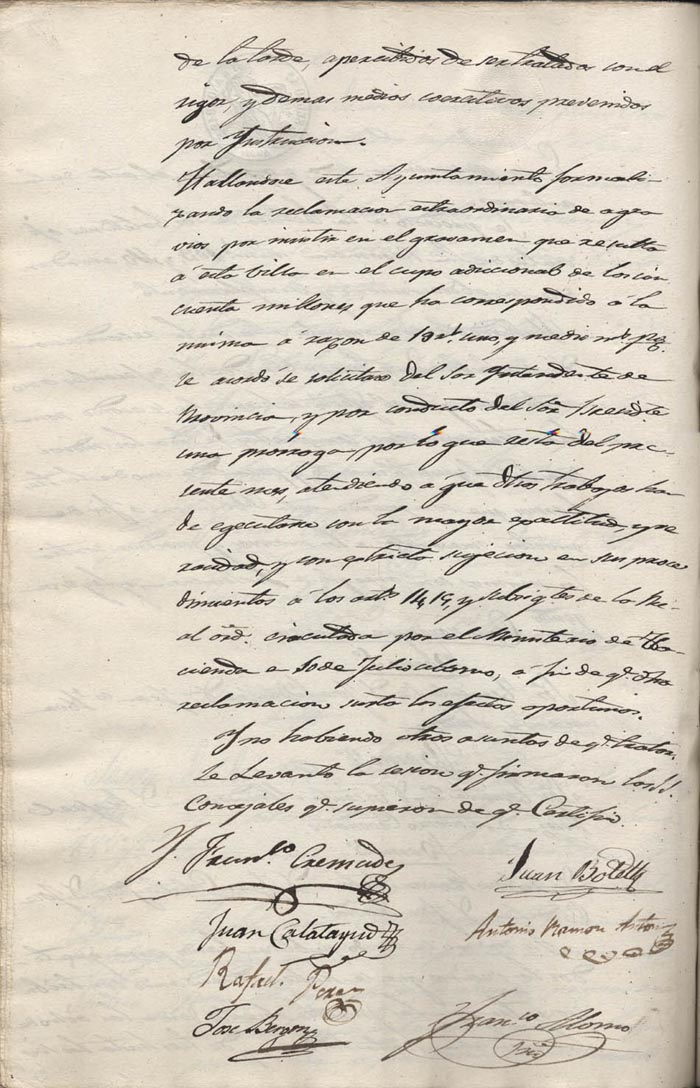 de la tarde, apercibidos de ser tratados con el
rigor, y demas medios coercitivos prevenidos
por Ynstruccion.
Hallandose este Ayuntamiento formali-
zando la reclamacion extraordinaria de agra
vios por invertir en el gravamen que resulta
á esta Villa en el cupo adiccional de los cin
cuenta millones que ha correspondido á la
misma á razon de uno, y medio
se acordó se solicitase del Sor Yntendente de
Provincia, y por conducto del Sor
una prórroga, por lo que resta del pre-
sente mes, atendiendo a que dhos trabajos han
de egecutarse con la mayor exactitud, y ve
racidad, y con extricta sugecion en sus proce
dimientos a los arts. 14, 15, y subsigtes de la Re-
al ord. circulada por el Ministerio de Ha-
cienda en 10 de Julio ultimo, a fin de q. dha
reclamacion surta los efectos oportunos.
Y no habiendo otros asuntos de q. tratar,
se Levantó la sesion q. firmaron los S.S.
Concejales q. supieron de q. Certifico.
Y. Franco Cremades
Juan Botella
Juan Calatayud
Antonio Ramon Anton
Rafael Perez
Jose Berenguer
Franco Alonso